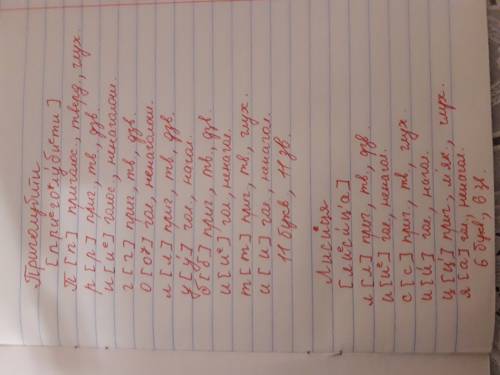 Приголубити
[приᵉгоʸлу́биᵉти]
П [п] приголос., тверд., глух.
р [р] приг., тв., дзв.
и [иᵉ] голос., ненаголош.
г [г] приг., тв., дзв.
о [оʸ] гол., ненаголош.
л [л] приг., тв., дзв.
у [у́] гол., нагол.
б [б] приг., тв., дзв.
и [иᵉ] гол., ненагол.
т [т] приг., тв., глух.
и [и] гол., ненагол.
11 букв, 11 зв.
Лисиця
[лиᵉси́ц'а]
л [л] приг., тв., дзв.
и [иᵉ] гол., ненагол.
с [с] приг., тв., глух.
и [и́] гол., нагол.
ц [ц'] приг., м'як., глух.
я [а] гол., ненагол.
6 букв, 6 зв.